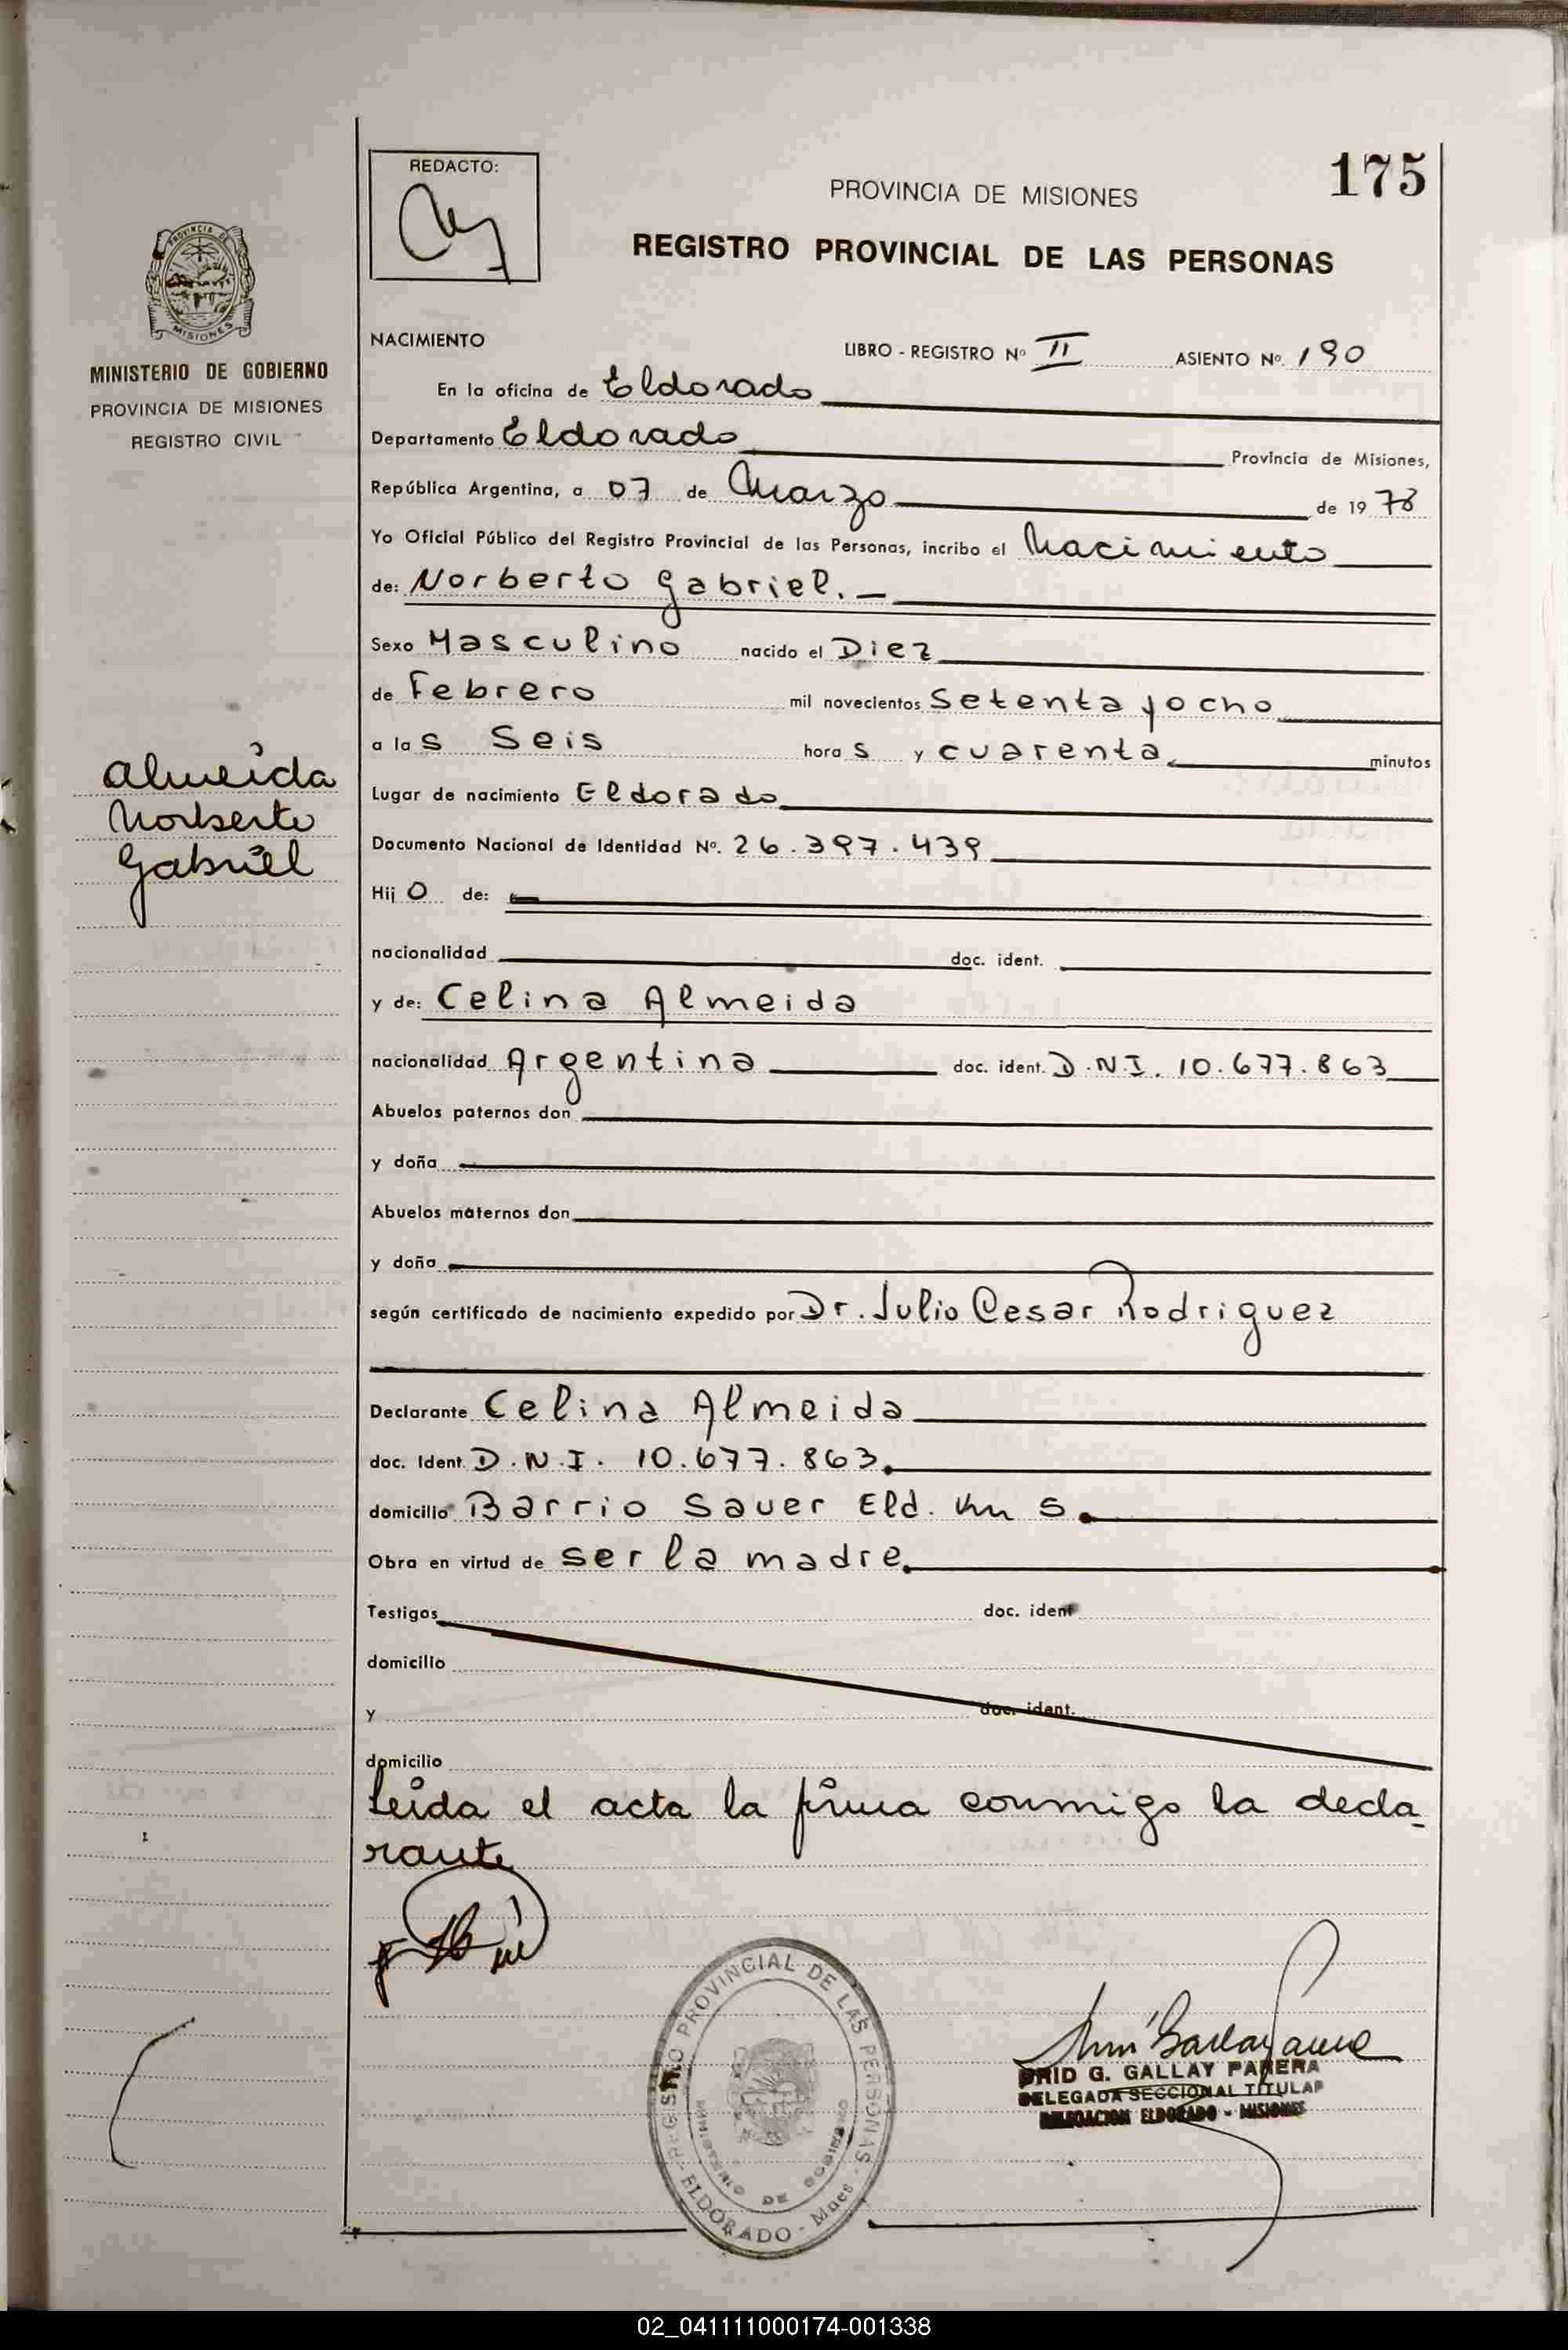 175
REDACTO:
PROVINCIA DE MISIONES
REGISTRO PROVINCIAL DE LAS PERSONAS
MINISTERIO DE GOBIERNO
PROVINCIA DE MISIONES
REGISTRO CIVIL
NACIMIENTO LIBRO - REGISTRO Nº II ASIENTO Nº. 190
En la oficina de Eldorado
Departamento Eldorado Provincia de Misiones,
República Argentina, a 07 de Marzo de 1978
Yo Oficial Público del Registro Provincial de las Personas, incribo el Nacimiento
de: Norberto Gabriel.
Sexo Masculino nacido el Diez
de Febrero mil novecientos Setenta y ocho
a las Seis horas y cuarenta minutos
Almeida
Norberto
Gabriel
Lugar de nacimiento Eldorado
Documento Nacional de Identidad Nº. 26.397.439
Hijo de:
nacionalidad doc. ident.
y de: Celina Almeida
nacionalidad Argentina doc. ident. D.N.I. 10.677.863
Abuelos paternos don
y doña
Abuelos maternos don
y doña
según certificado de nacimiento expedido por Dr. Julio Cesar Rodriguez
Declarante Celina Almeida
doc. Ident. D.N.I. 10.677.863.
domicilio Barrio Sauer Eld. Km 5.
Obra en virtud de ser la madre.
Testigos doc. ident
domicilio
y doc. ident.
domicilio
Leída el acta la firma conmigo la decla-
rante
REGISTRO PROVINCIAL DE LAS PERSONAS - ELDORADO - Mnes
MINISTERIO DE GOBIERNO
G. GALLAY PARERA
DELEGADA SECCIONAL TITULAR
DELEGACION ELDORADO - MISIONES
02_041111000174-001338